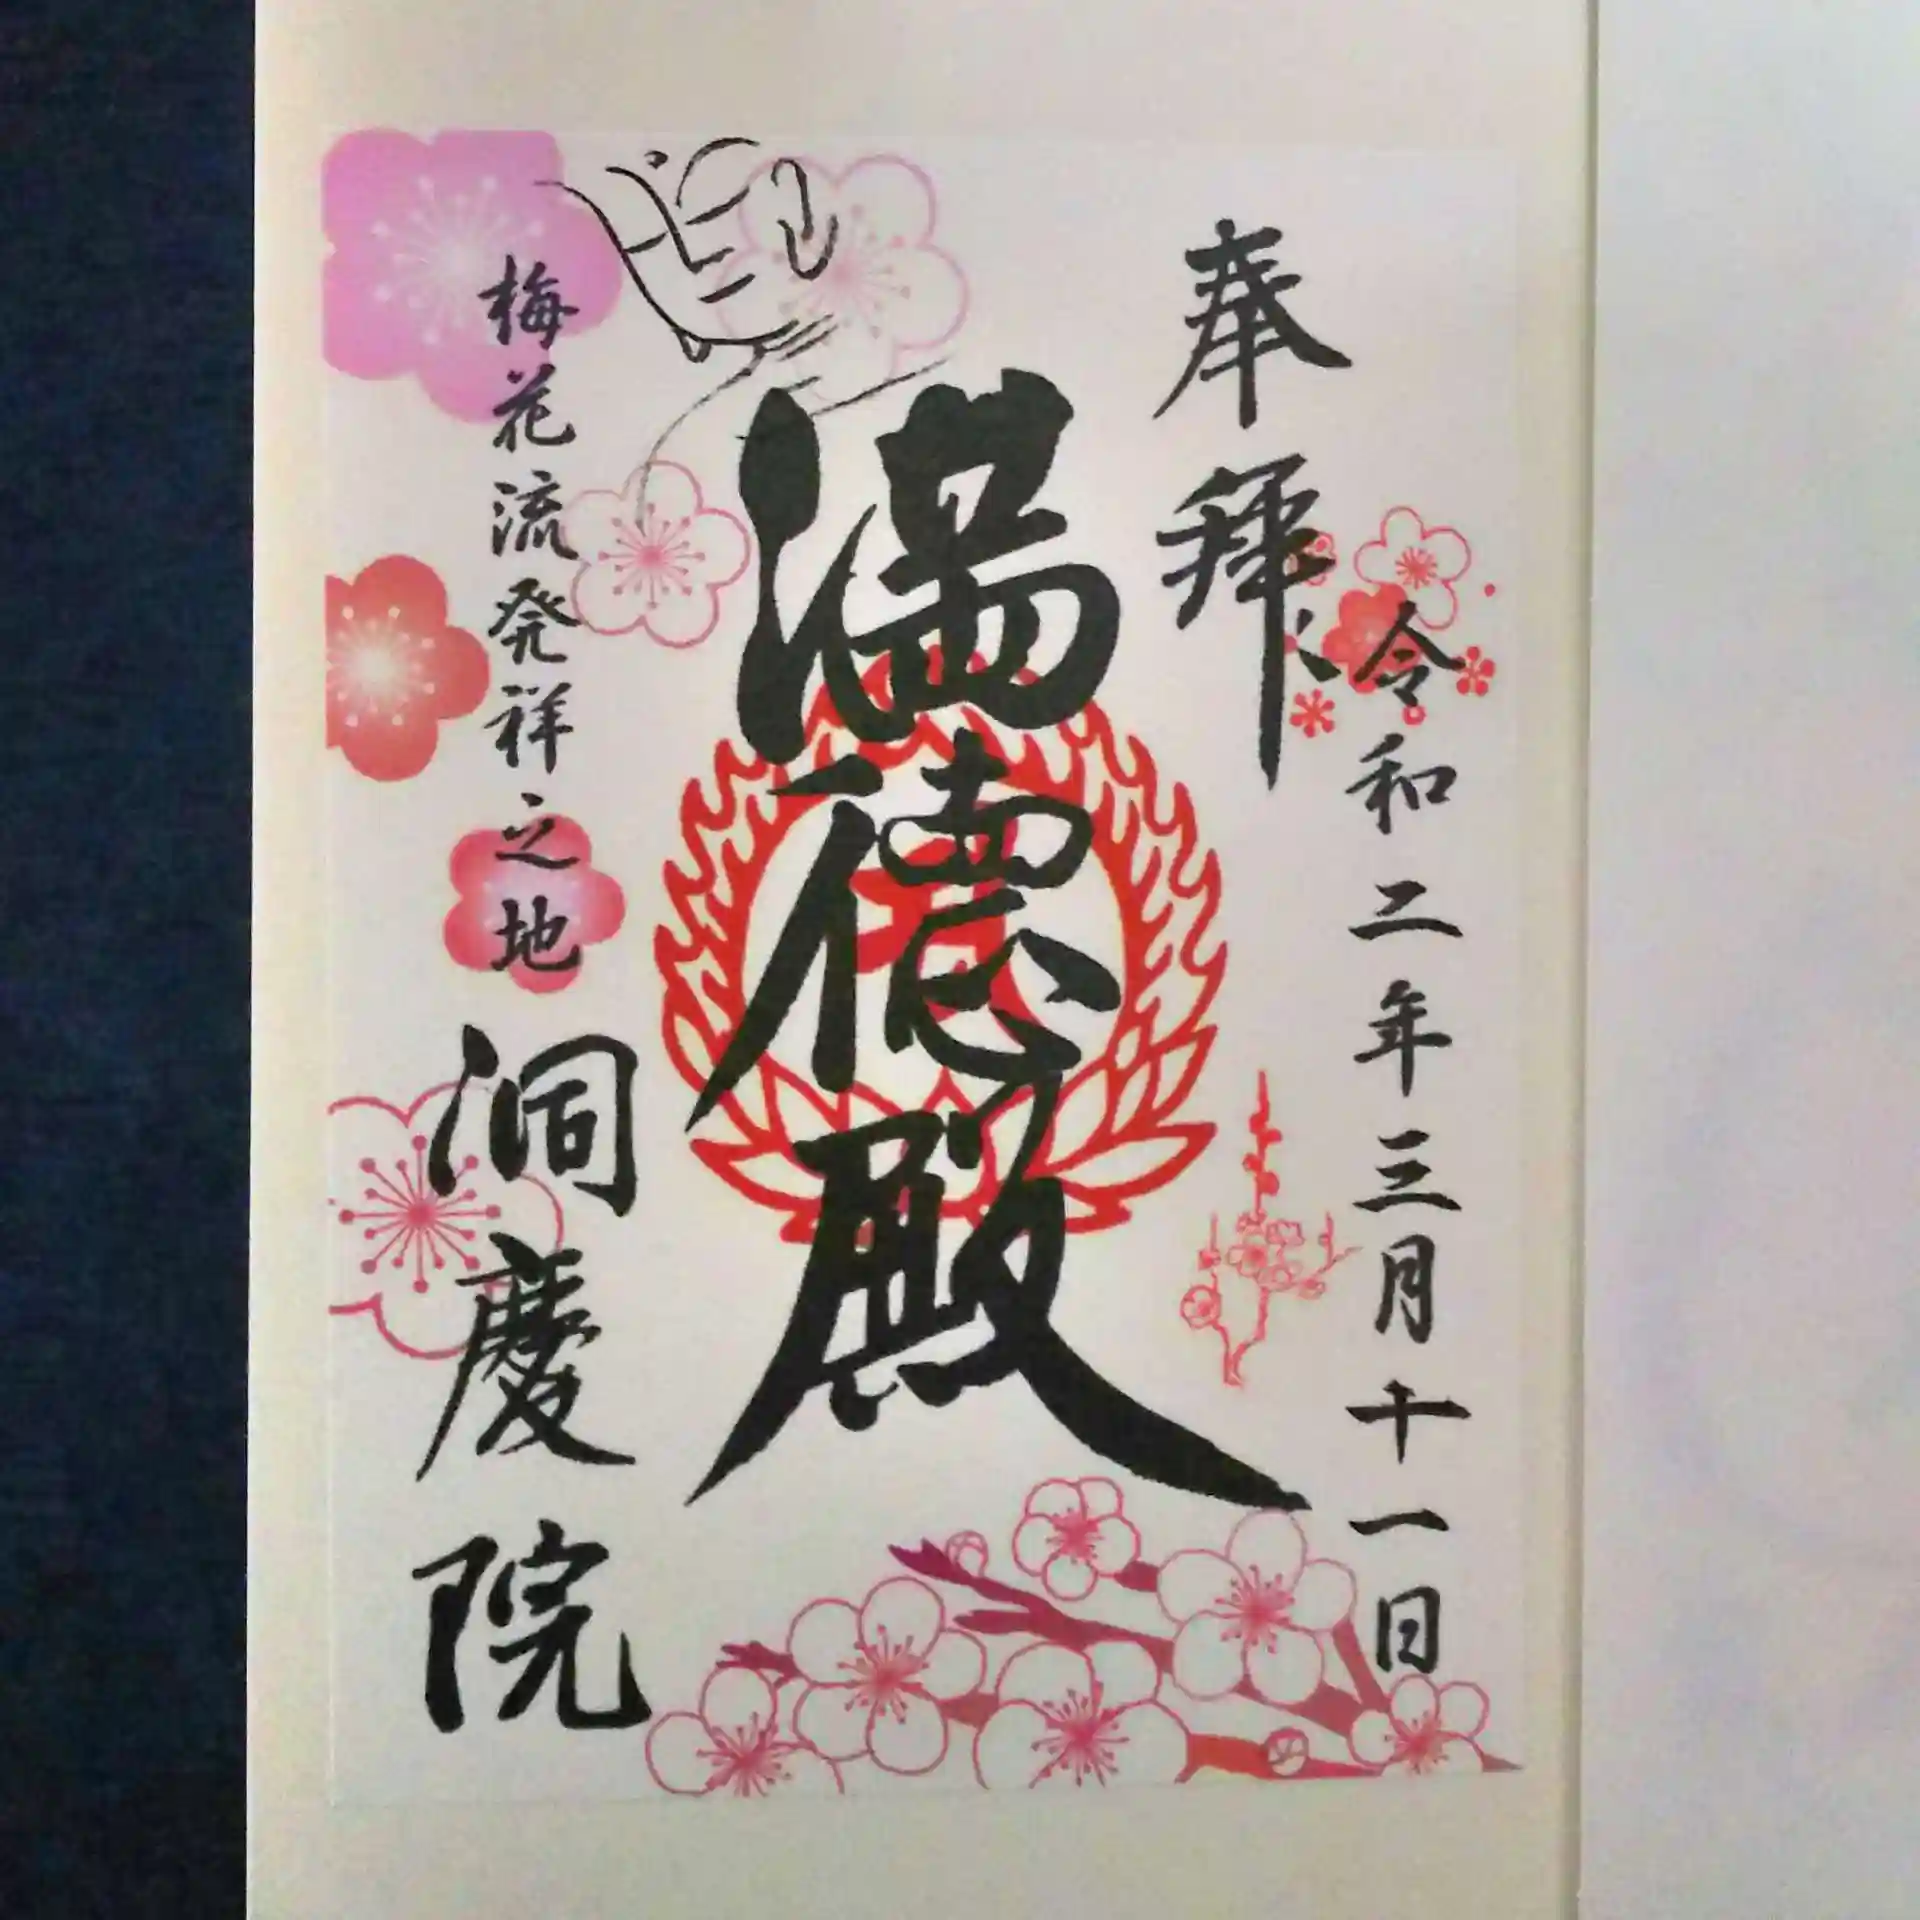 奉拝
令和二年三月十一日
徳殿
梅花流発祥之地
洞慶院